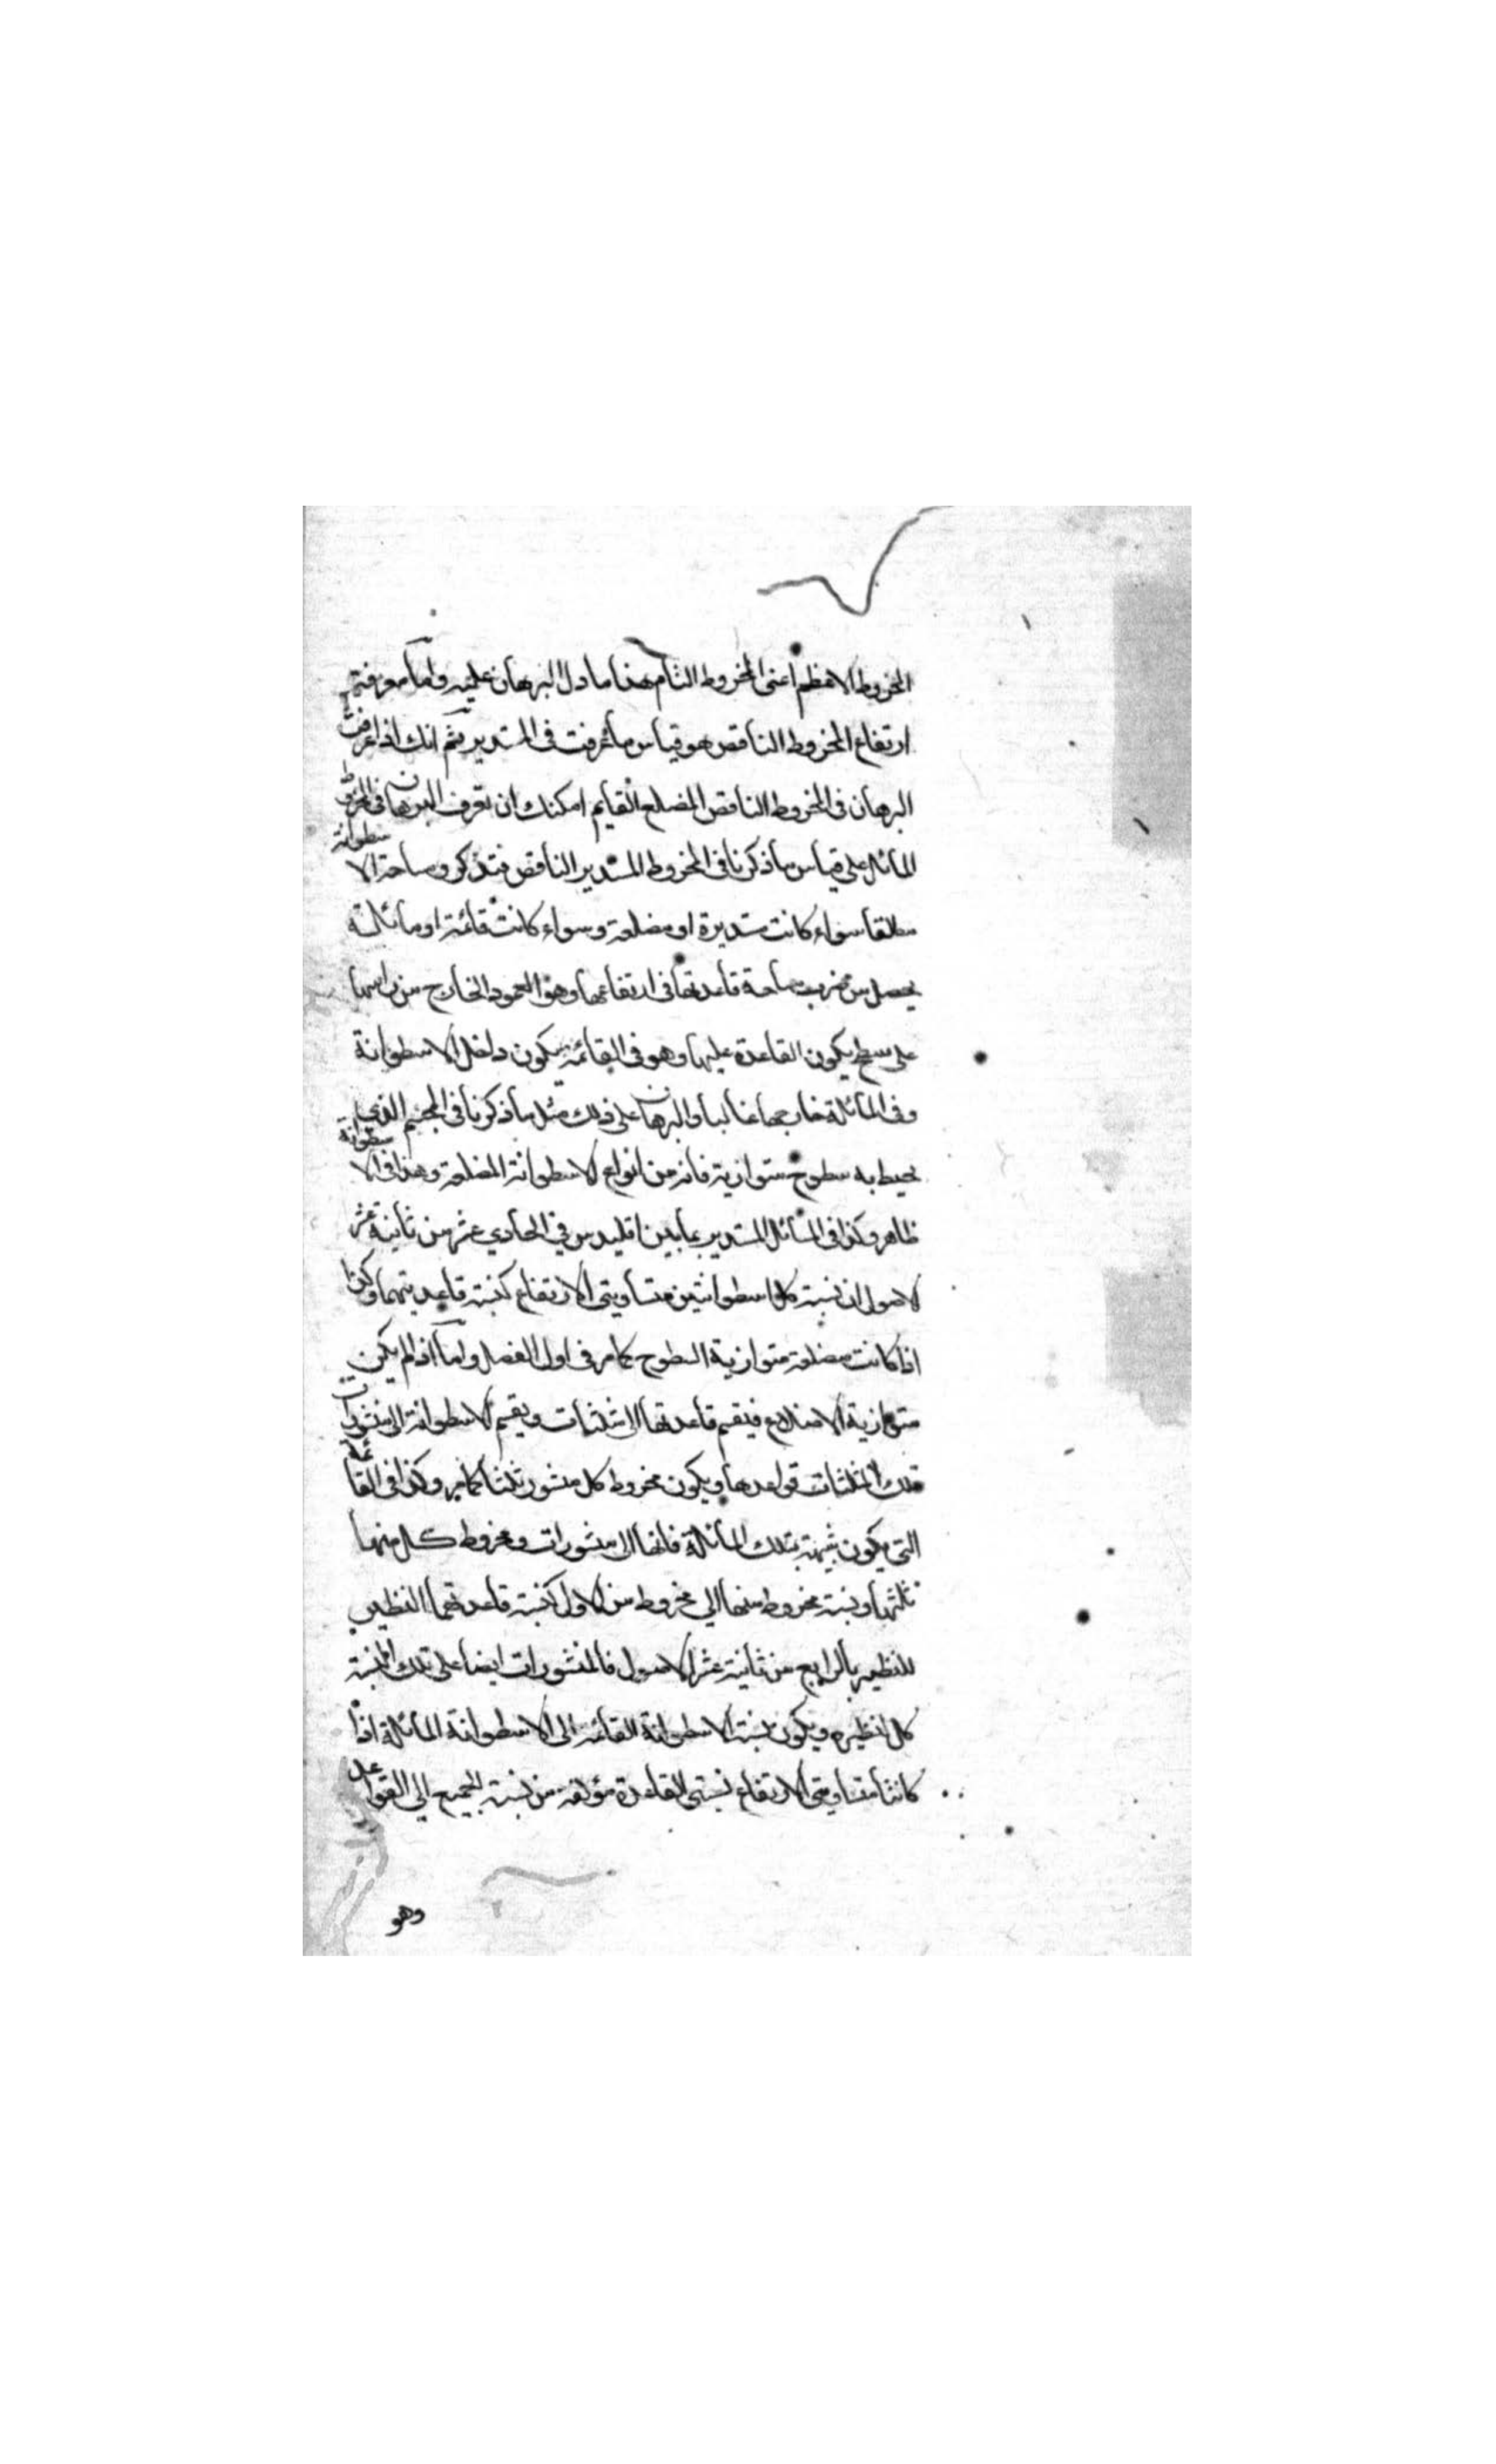 المخروط الاعظم اعنى المخروط التام هذا ما دل البرهان عليه واما معرفته
ارتفاع المخروط الناقص هو قياس ما عرفت فى المستدير ثم انك اذا عرفت
البرهان فى المخروط الناقص المضلع القايم امكنك ان تعرف البرهان فى المخروط
المائل على قياس ما ذكرنا فى المخروط المستدير الناقص فتذكر ومساحة الاسطوانة
مطلقا سواء كانت مستديرة او مضلعة وسواء كانت قائمة او مائلة
يحصل من ضرب مساحة قاعدتها فى ارتفاعها وهو العمود الخارج من راسها
على سطح يكون القاعدة عليها وهو فى القائمة يكون داخل الاسطوانة
وفى المائلة خارجها غالبا والبرهان على ذلك مثل ما ذكرنا فى المجسم الذى
يحيط به سطوح متوازية فانه من انواع الاسطوانة المضلعة وهذا فى الاسطوانة
ظاهر وكذا فى المائل المستدير بما بين اقليدس فى الحادي عشر من ثانية عشر
الاصول ان نسبة كل اسطوانتين متساويتى الارتفاع كنسبة قاعدتيهما وكذا
اذا كانت مضلعة متوازية السطوح كما مر فى اول الفصل واما اذا لم يكن
متوازية الاضلاع فينقسم قاعدتها الى مثلثات وينقسم الاسطوانة الى منشورات
تلك المثلثات قواعدها ويكون مخروط كل منشور ثلثا كما مر وكذا فى القائمة
التى يكون شبيهة بتلك المائلة فانها الى منشورات ومخروط كل منها
ثلثها ونسبة مخروط منها الي مخروط من الاول كنسبة قاعدتهما النظير
للنظير بالرابع من ثانية عشر الاصول فالمنشورات ايضا على تلك النسبة
كل لنظيره ويكون نسبة الاسطوانة القائمة الى الاسطوانة المائلة اذا
كانتا متساويتى الارتفاع نسبتى القاعدة مؤلفة من نسبة الجميع الى القواعد
وهو